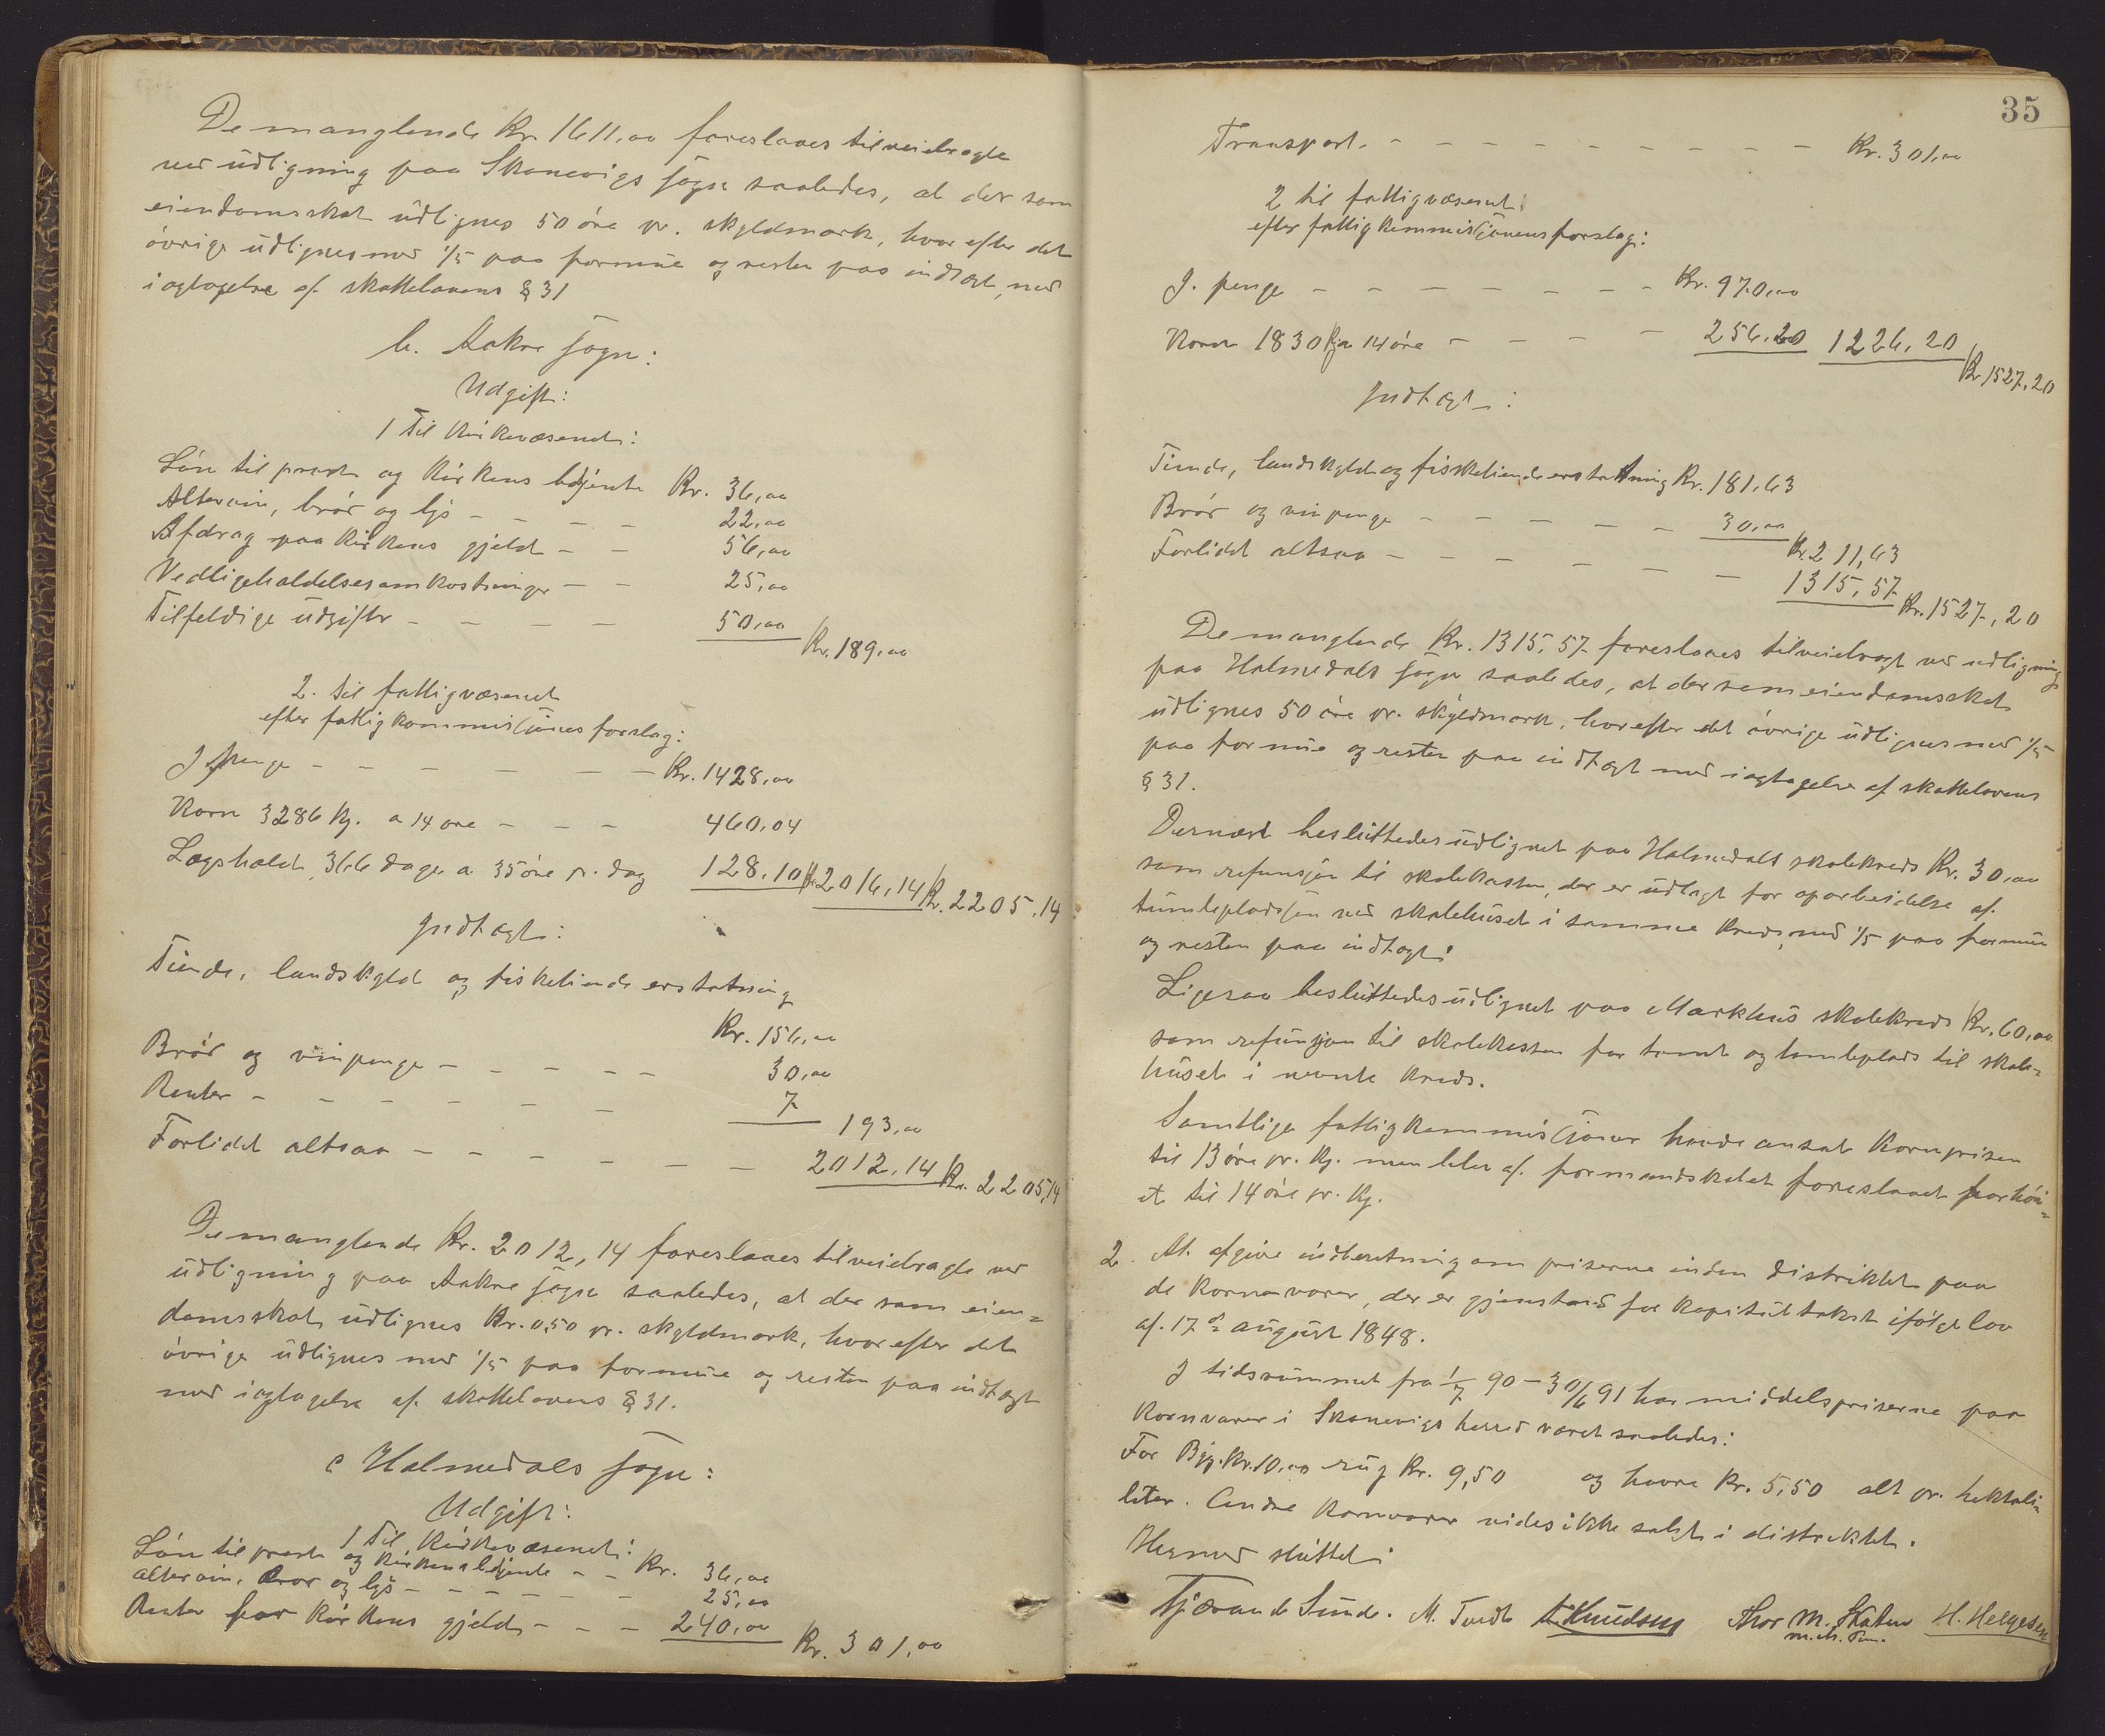 De manglende Kr. 1611,00 foreslaaes tilveiebragte
ved udligning paa Skanevigs sogn saaledes, at der som
eiendomsskat udlignes 50 öre pr. skyldmark, hvorefter det
övrige udlignes med 1/5 paa formue og resten paa indtægt, med
iagtagelse af skattelovens § 31
b. Aakre sogn:
Udgift:
1 Til Kirkevæsenet:
Lön til prest og Kirkens betjente Kr. 36,00
Altervin, bröd og lys - - - - 22,00
Afdrag paa Kirkens gjeld - - 56,00
Vedligeholdelsesomkostninger - - 25,00
Tilfeldige udgifter - - - - 50,00 Kr. 189,00
2. til fattigvæsenet
efter fattigkommissjönens forslag:
I penge - - - - - - - Kr. 1428,00
Korn 3286 Kg. a 14 öre - - - 460,04
Lægshold, 366 dage a 35 öre pr. dag 128,10 Kr. 2016,14 Kr. 2205,14
Indtægt:
Tiende, landskyld og fisketiende erstatning
Kr. 156,00
Bröd og vinpenge - - - - - 30,00
Renter - - - - - - 7 193,00
Forlidet altsaa - - - - - - 2012,14 Kr. 2205,14
De manglende Kr. 2012,14 foreslaaes tilveiebragte ved
udligning paa Aakre sogn saaledes, at der som eien=
domsskat udlignes Kr. 0,50 pr. skyldmark, hvorefter det
övrige udlignes med 1/5 paa formue og resten paa indtægt
med iagtagelse af skattelovens § 31.
c Holmedals sogn:
Udgift:
1 Til Kirkevæsenet:
Lön til prest og Kirkens betjente - - Kr. 36,00
altervin, bröd og lys - - - - - - 25,00
Renter paa Kirkens gjeld - - - 240,00 Kr. 301,00
35
Transport. - - - - - - - - - - Kr. 301,00
2 til fattigvæsenet
efter fattigkommissjönens forslag:
I. penge - - - - - - - - Kr. 970,00
Korn 1830 Kg a 14 öre - - - - 256,20 1226,20
Kr 1527,20
Indtægt:
Tiende, landskyld og fisketiende erstatning Kr. 181,63
Bröd og vinpenge - - - - - - 30,00 Kr. 211,63
Forlidet altsaa - - - - - - - 1315,57 Kr. 1527,20
De manglende Kr. 1315,57 foreslaaes tilveiebragt ved udligning
paa Holmedals sogn saaledes, at der som eiendomsskat
udlignes 50 öre pr. skyldmark, hvorefter det övrige udlignes med 1/5
paa formue og resten paa indtægt med iagtagelse af skattelovens
§ 31.
Dernæst besluttedes udlignet paa Holmedals skolekreds Kr. 30,00
som refunsjon til skolekassen, der er udlagt for oparbeidelse af
tumlepladsen ved skolehuset i samme kreds, med 1/5 paa formue
og resten paa indtægt.
Ligesaa besluttedes udlignet paa Markhus skolekreds Kr. 60,00
som refunsjon til skolekassen for tomt og tumleplads til skole=
huset i nevnte kreds.
Samtlige fattigkommissjoner havde ansat Kornprisen
til 13 öre pr. Kg. men blev af formandskabet foreslaaet forhöi=
et til 14 öre pr. Kg.
2. At afgive indberetning om priserne inden Distriktet paa
de Kornvarer, der er gjenstand for Kapitulstakst ifölge lov
af 17de august 1848.
I tidsrummet fra 1/7 90 - 30/6 91 har middelspriserne paa
Kornvarer i Skanevigs herred været saaledes:
For Byg. Kr. 10,00 rug Kr. 9,50 og havre Kr. 5,50 alt pr. hektoli=
liter. Andre Kornvarer vides ikke solgt i distriktet.
Hermed sluttet
Tjerand Sunde. M. Tvedt Knudsen Thor M. Skaten H. Helgesen